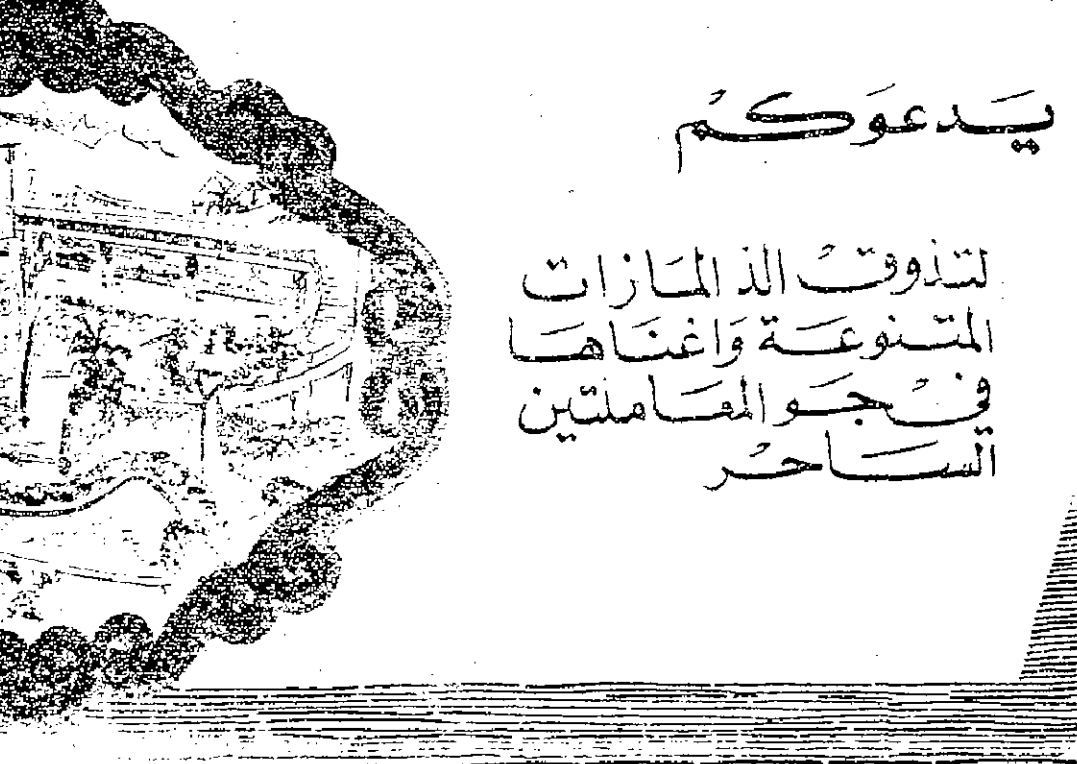 يَدعوَكمُ
لتذوقُ الذ المَازات
المتنوعَة وَاغنَاهَا
فيُ جَو المعَاملتين
السَاحُر